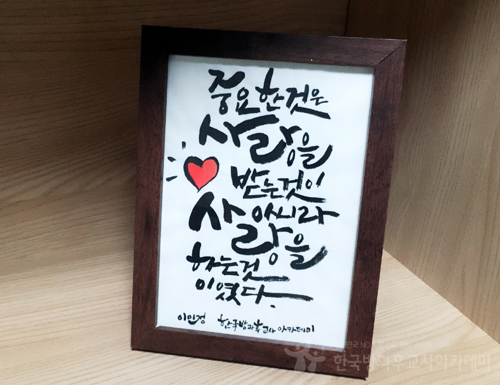 중요한것은
사랑을
받는것이
아니라
사랑을
하는것
이였다.
이민정 한국방과후교사아카데미
한국방과후교사아카데미